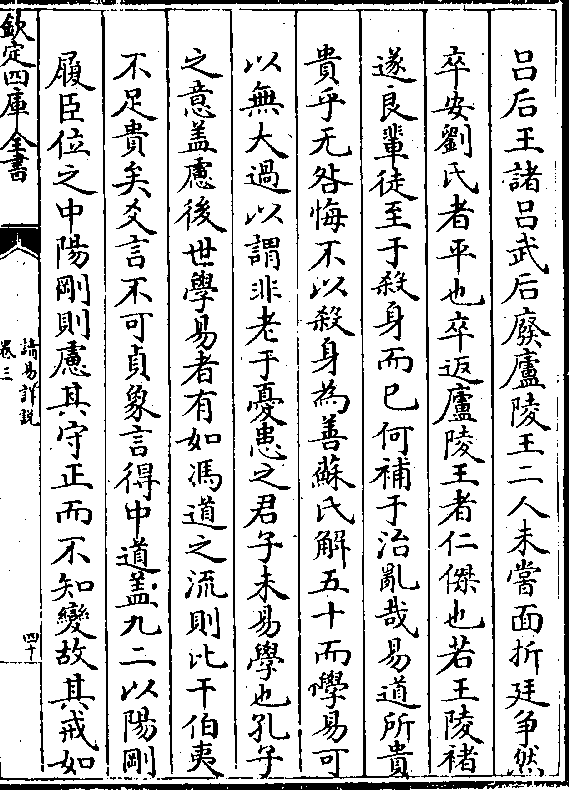 吕后王諸吕武后廢廬陵王二人未嘗面折廷争然
卒安劉氏者平也卒返廬陵王者仁傑也若王陵褚
遂良輩徒至于殺身而已何補于治亂哉易道所貴
貴乎无咎悔不以殺身為善蘇氏解五十而學易可
以無大過以謂非老于憂患之君子未易學也孔子
之意盖慮後世學易者有如馮道之流則比干伯夷
不足貴矣爻言不可貞象言得中道盖九二以陽剛
履臣位之中陽剛則慮其守正而不知變故其戒如
欽定四庫全書
讀易詳説
卷三
四十